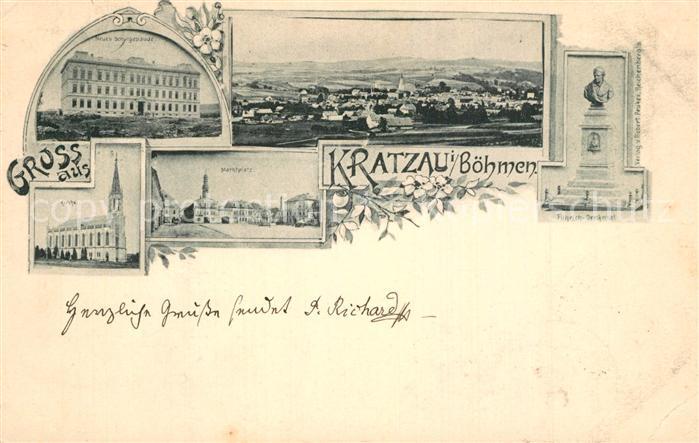 Neues Schulgebäude.
GRUSS
aus
KRATZAU i/Böhmen.
Kirche
Marktplatz.
Führich-Denkmal
Verlag v. Robert Peuker, Reichenberg i/B
Herzliche Grüße sendet A. Richard